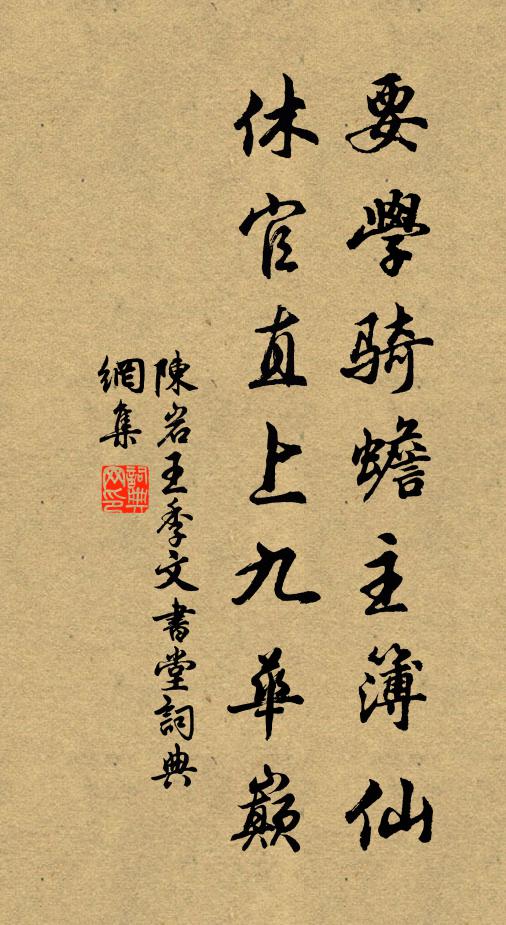 要學騎蟾主簿仙
休官直上九華巔
陳岩王季文書堂詞典
網集
詞典
网印